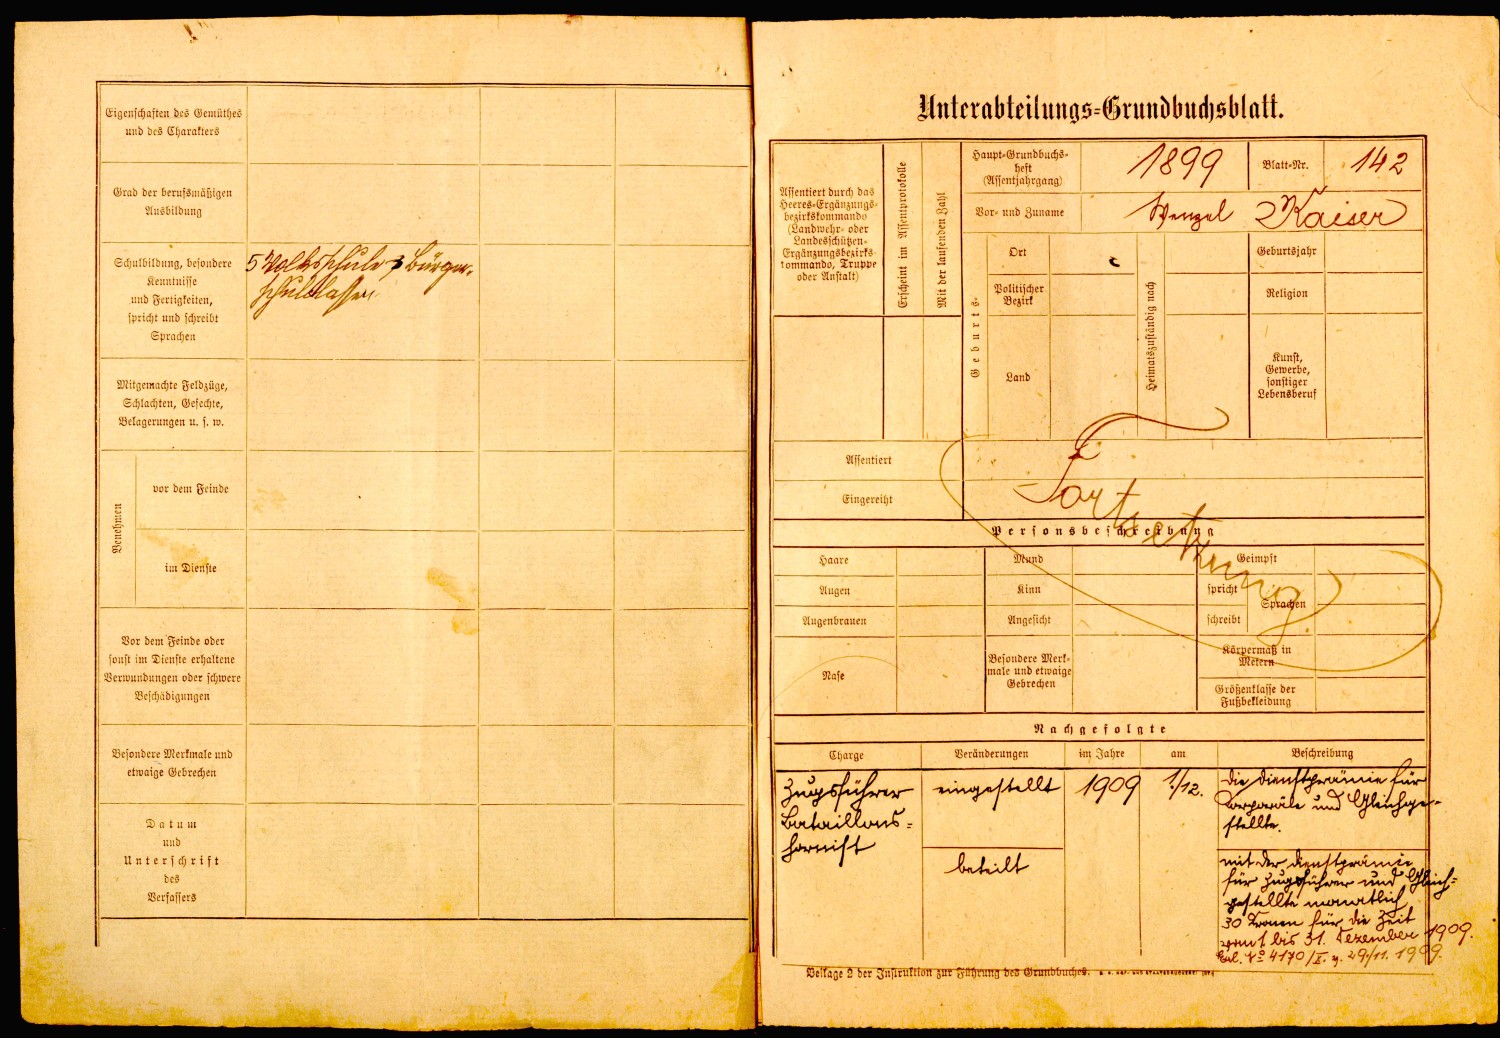 Eigenschaften des Gemüthes
und des Charakters
Grad der berufsmäßigen
Ausbildung
Schulbildung, besondere
Kenntnisse
und Fertigkeiten,
spricht und schreibt
Sprachen
5 Volksschule 3 Bürger-
schulclassen
Mitgemachte Feldzüge,
Schlachten, Gefechte,
Belagerungen u. s. w.
Benehmen
vor dem Feinde
im Dienste
Vor dem Feinde oder
sonst im Dienste erhaltene
Verwundungen oder schwere
Beschädigungen
Besondere Merkmale und
etwaige Gebrechen
Datum
und
Unterschrift
des
Verfassers
Unterabteilungs-Grundbuchsblatt.
Assentiert durch das
Heeres-Ergänzungs-
bezirkskommando
(Landwehr- oder
Landesschützen-
Ergänzungsbezirks-
kommando, Truppe
oder Anstalt)
Erscheint im Assentprotokolle
Mit der laufenden Zahl
Haupt-Grundbuchs-
heft
(Assentjahrgang)
1899
Blatt-Nr.
142
Vor- und Zuname
Wenzel Kaiser
Geburts-
Ort
Politischer
Bezirk
Land
Heimatszuständig nach
Geburtsjahr
Religion
Kunst,
Gewerbe,
sonstiger
Lebensberuf
Assentiert
Eingereiht
Fortsetzung
Personsbeschreibung
Haare
Mund
Geimpft
Augen
Kinn
spricht
Sprachen
Augenbrauen
Angesicht
schreibt
Nase
Besondere Merk-
male und etwaige
Gebrechen
Körpermaß in
Metern
Größenklasse der
Fußbekleidung
Nachgefolgte
Charge
Veränderungen
im Jahre
am
Beschreibung
Zugsführer
Bataillons-
hornist
eingestellt
1909
1./12.
die Dienstprämie für
Korporale und Gleichge-
stellte.
beteilt
mit der Dienstprämie
für Zugsführer und Gleich-
gestellte monatlich
30 Kronen für die Zeit
vom 1 bis 31. Dezember 1909.
No 4170/I. v. 29./11. 1909.
Beilage 2 der Instruktion zur Führung des Grundbuches.